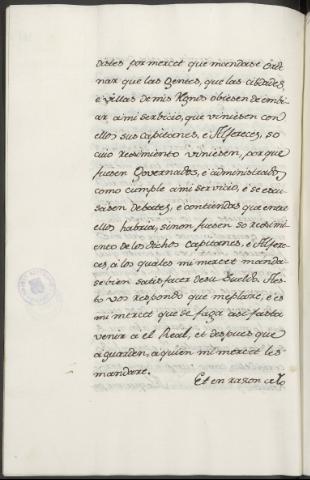 distes por mercet que mandase Ord
nar que las Gentes, que las cibdades,
e villas de mis Regnos obiesen de embi
ar a mi serbicio, que viniesen con
ellos sus capitanes, e Alfereces, so
cuio resimiento viniesen, porque
fuesen Governados, e administrados,
como cumple a mi servicio, e se escu
sasen debates, e contiendas que entre
ellos habria, sinon fuesen so resimi
ento de los dichos Capitanes, e Alfere
ces, a los quales mi mercet manda
se bien satisfacer de su Sueldo. A es-
to vos respondo que me place, e es
mi mercet que se faga asi fasta
venir a el Real, et despues que
aguarden, a quien mi mercet les
mandare.
Et en razon a lo